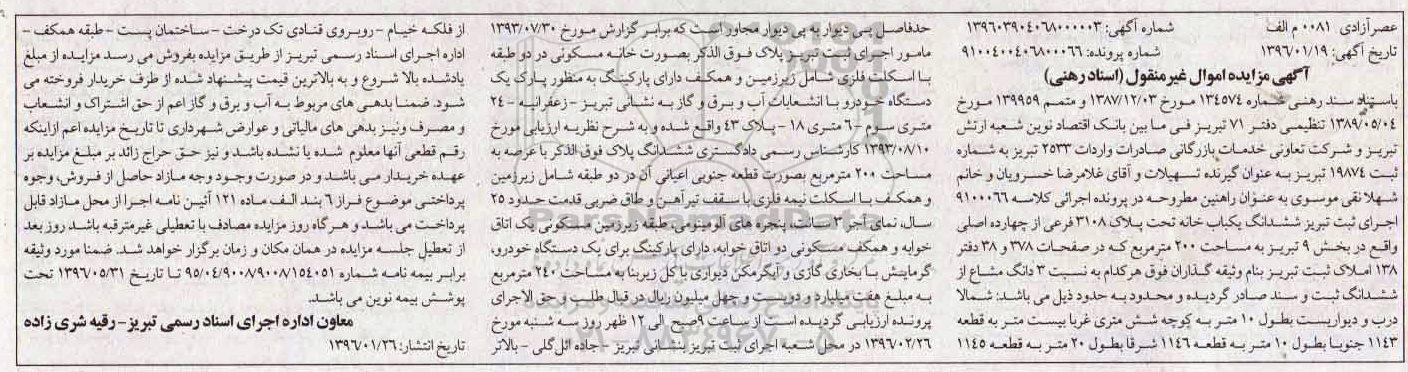 عصر آزادی ۰۰۸۱ م الف شماره آگهی: ۱۳۹۶۰۳۹۰۴۰۶۸۰۰۰۰۰۳
تاریخ آگهی: ۱۳۹۶/۰۱/۱۹ شماره پرونده: ۹۱۰۰۴۰۰۴۰۶۸۰۰۰۶۶
آگهی مزایده اموال غیر منقول (اسناد رهنی)
باستناد سند رهنی شماره ۱۳۴۵۷۴ مورخ ۱۳۸۷/۱۲/۰۳ و متمم ۱۳۹۹۵۹ مورخ
۱۳۸۹/۰۵/۰۴ تنظیمی دفتر ۷۱ تبریز فی ما بین بانک اقتصاد نوین شعبه ارتش
تبریز و شرکت تعاونی خدمات بازرگانی صادرات واردات ۲۵۳۳ تبریز به شماره
ثبت ۱۹۸۷۴ تبریز به عنوان گیرنده تسهیلات و آقای غلامرضا خسرویان و خانم
شهلا نقی موسوی به عنوان راهنین مطروحه در پرونده اجرائی کلاسه ۹۱۰۰۰۶۶
اجرای ثبت تبریز ششدانگ یکباب خانه تحت پلاک ۳۱۰۸ فرعی از چهارده اصلی
واقع در بخش ۹ تبریز به مساحت ۲۰۰ مترمربع که در صفحات ۳۷۸ و ۳۸ دفتر
۱۳۸ املاک ثبت تبریز بنام وثیقه گذاران فوق هرکدام به نسبت ۳ دانگ مشاع از
ششدانگ ثبت و سند صادر گردیده و محدود به حدود ذیل می باشد: شمالا
درب و دیواریست بطول ۱۰ متر به کوچه شش متری غربا بیست متر به قطعه
۱۱۴۳ جنوبا بطول ۱۰ متر به قطعه ۱۱۴۶ شرقا بطول ۲۰ متر به قطعه ۱۱۴۵
حدفاصل پی دیوار به پی دیوار مجاور است که برابر گزارش مورخ ۱۳۹۳/۰۷/۳۰
مامور اجرای ثبت تبریز پلاک فوق الذکر بصورت خانه مسکونی در دو طبقه
با اسکلت فلزی شامل زیرزمین و همکف دارای پارکینگ به منظور پارک یک
دستگاه خودرو با انشعابات آب و برق و گاز به نشانی تبریز - زعفرانیه - ۲۴
متری سوم - ۶ متری ۱۸ - پلاک ۴۳ واقع شده و به شرح نظریه ارزیابی مورخ
۱۳۹۳/۰۸/۱۰ کارشناس رسمی دادگستری ششدانگ پلاک فوق الذکر با عرصه به
مساحت ۲۰۰ مترمربع بصورت قطعه جنوبی اعیانی آن در دو طبقه شامل زیرزمین
و همکف با اسکلت نیمه فلزی با سقف تیرآهن و طاق ضربی قدمت حدود ۲۵
سال، نمای آجر ۳ سانت، پنجره های آلومینومی، طبقه زیرزمین مسکونی یک اتاق
خوابه و همکف مسکونی دو اتاق خوابه، دارای پارکینگ برای یک دستگاه خودرو،
گرمایش با بخاری گازی و آبگرمکن دیواری با کل زیربنا به مساحت ۲۴۰ مترمربع
به مبلغ هفت میلیارد و دویست و چهل میلیون ریال در قبال طلب و حق الاجرای
پرونده ارزیابی گردیده است از ساعت ۹ صبح الی ۱۲ ظهر روز سه شنبه مورخ
۱۳۹۶/۰۲/۲۶ در محل شعبه اجرای ثبت تبریز بنشانی تبریز - جاده ائل گلی - بالاتر
از فلکه خیام - روبروی قنادی تک درخت - ساختمان پست - طبقه همکف -
اداره اجرای اسناد رسمی تبریز از طریق مزایده بفروش می رسد مزایده از مبلغ
یادشده بالا شروع و به بالاترین قیمت پیشنهاد شده از طرف خریدار فروخته می
شود. ضمنا بدهی های مربوط به آب و برق و گاز اعم از حق اشتراک و انشعاب
و مصرف ونیز بدهی های مالیاتی و عوارض شهرداری تا تاریخ مزایده اعم ازاینکه
رقم قطعی آنها معلوم شده یا نشده باشد و نیز حق حراج زائد بر مبلغ مزایده بر
عهده خریدار می باشد و در صورت وجود وجه مازاد حاصل از فروش، وجوه
پرداختی موضوع فراز ۶ بند الف ماده ۱۲۱ آئین نامه اجرا از محل مازاد قابل
پرداخت می باشد و هر گاه روز مزایده مصادف با تعطیلی غیرمترقبه باشد روز بعد
از تعطیل جلسه مزایده در همان مکان و زمان برگزار خواهد شد. ضمنا مورد وثیقه
برابر بیمه نامه شماره ۹۵/۰۴/۹۰۰۸/۹۰۰۸/۱۵۴۰۵۱ تا تاریخ ۱۳۹۶/۰۵/۳۱ تحت
پوشش بیمه نوین می باشد.
معاون اداره اجرای اسناد رسمی تبریز - رقیه شری زاده
تاریخ انتشار: ۱۳۹۶/۰۱/۲۶
ParsNamadData